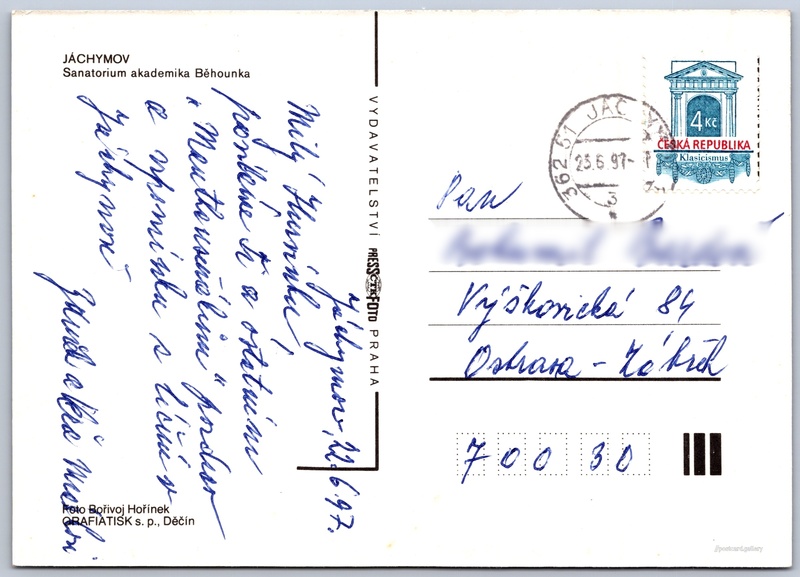 JÁCHYMOV
Sanatorium akademika Běhounka
Jáchymov, 22.6.97.
Milý
posíláme Ti s ostatními
"
" pozdrav
a vzpomínku s léčení v
Jáchymově
Foto Bořivoj Hořínek
GRAFIATISK s. p., Děčín
VYDAVATELSTVÍ PRESSFOTO PRAHA
4 Kč
ČESKÁ REPUBLIKA
Klasicismus
362 51 JÁCHYMOV
23.6.97
3
Pan
Výškovická 84
Ostrava - Zábřeh
700 30
postcard.gallery